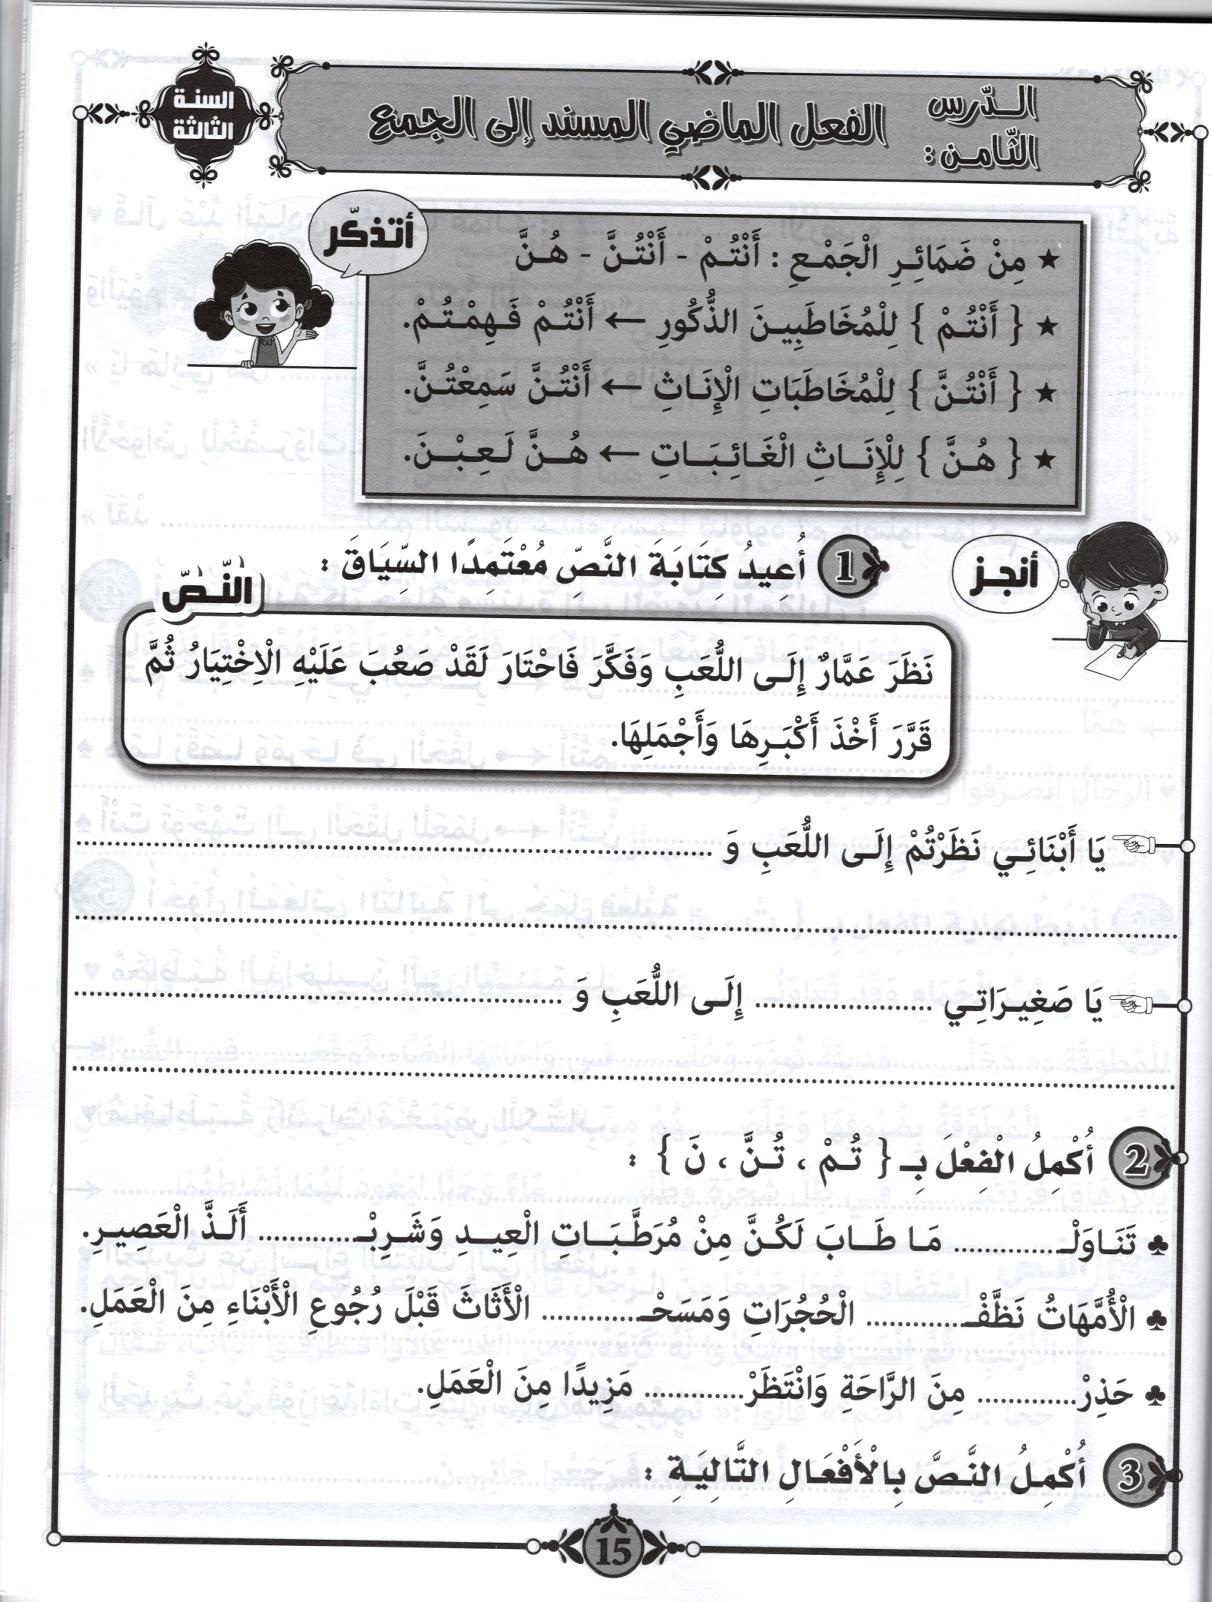 السنة
الثالثة
الدّرس الثّامن : الفعل الماضي المسند إلى الجمع
أتذكّر
★ مِنْ ضَمَائِرِ الْجَمْعِ : أَنْتُمْ - أَنْتُنَّ - هُنَّ
★ { أَنْتُمْ } لِلْمُخَاطَبِينَ الذُّكُورِ ← أَنْتُمْ فَهِمْتُمْ.
★ { أَنْتُنَّ } لِلْمُخَاطَبَاتِ الْإِنَاثِ ← أَنْتُنَّ سَمِعْتُنَّ.
★ { هُنَّ } لِلْإِنَاثِ الْغَائِبَاتِ ← هُنَّ لَعِبْنَ.
أنجز
1 أُعِيدُ كِتَابَةَ النَّصِّ مُعْتَمِدًا السِّيَاقَ :
النّصّ
نَظَرَ عَمَّارٌ إِلَى اللُّعَبِ وَفَكَّرَ فَاحْتَارَ لَقَدْ صَعُبَ عَلَيْهِ الْاِخْتِيَارُ ثُمَّ
قَرَّرَ أَخْذَ أَكْبَرِهَا وَأَجْمَلِهَا.
يَا أَبْنَائِي نَظَرْتُمْ إِلَى اللُّعَبِ وَ ............
............
يَا صَغِيرَاتِي ............ إِلَى اللُّعَبِ وَ ............
............
2 أُكْمِلُ الْفِعْلَ بِـ { تُمْ ، تُنَّ ، نَ } :
♣ تَنَاوَلْـ............ مَا طَابَ لَكُنَّ مِنْ مُرَطَّبَاتِ الْعِيدِ وَشَرِبْـ............ أَلَذَّ الْعَصِيرِ.
♣ الْأُمَّهَاتُ نَظَّفْـ............ الْحُجُرَاتِ وَمَسَحْـ............ الْأَثَاثَ قَبْلَ رُجُوعِ الْأَبْنَاءِ مِنَ الْعَمَلِ.
♣ حَذِرْ............ مِنَ الرَّاحَةِ وَانْتَظَرْ............ مَزِيدًا مِنَ الْعَمَلِ.
3 أُكْمِلُ النَّصَّ بِالْأَفْعَالِ التَّالِيَةِ :
15